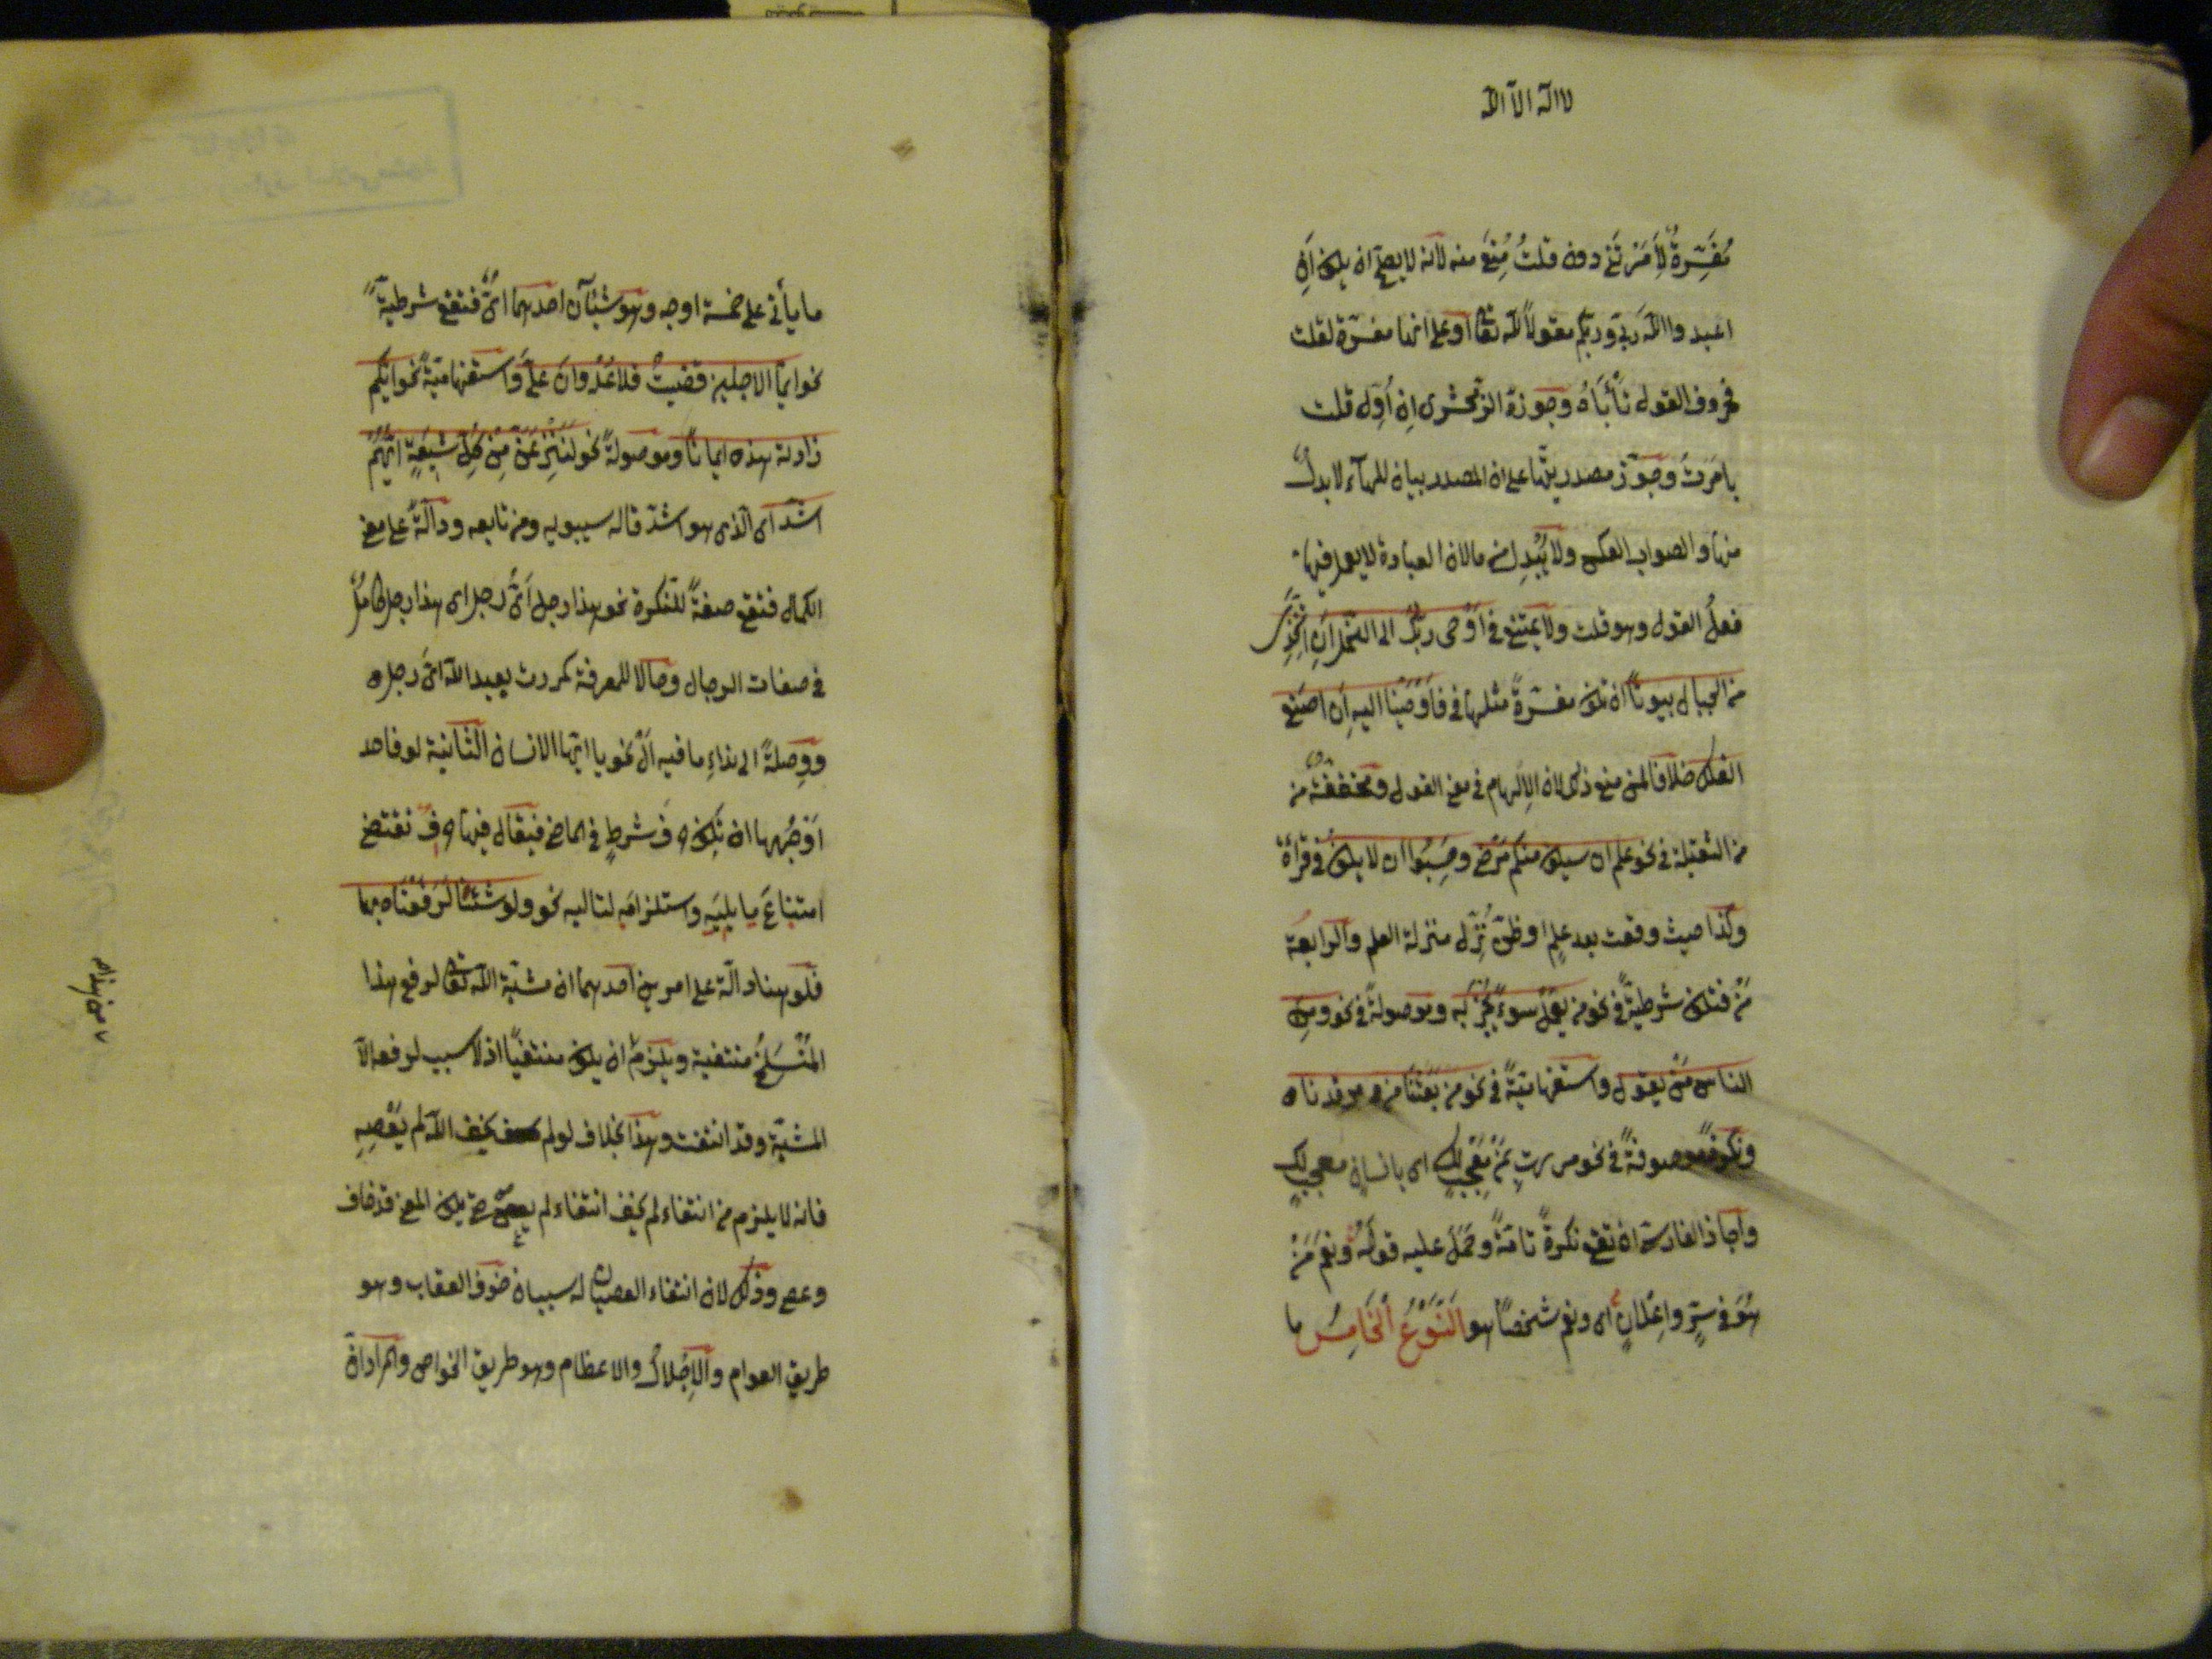 لا اله الا الله
مُفَسِّرةٌ لِأَمَرْتَنِي دون قلتُ مُنِعَ منه لانه لا يصحّ ان يكون اَنِ
اعبدوا اللّه ربّي وربّكم مقولًا للّه تعالى او على انها مفسّرة لقلت
فحروف القول تَأْبَاهُ وجوّزه الزّمخشرى ان اُوِّل قلت
بامَرتُ وجوّز مصدريتها على ان المصدر بيان للهآء لا بدلٌ
منها والصواب العكس ولا يُبْدِل من ما لان العبادة لا يعمل فيها
فعلُ القول وهو قلت ولا يمتنع في اَوْحى ربّك الى النّحل اَنِ اتّخِذِى
من الجبال بيوتًا ان تكون مفسّرةً مثلها في فَاَوْحَيْنا اليه اَنِ اصْنَعِ
الفلك خلافًا لمن منع ذلك لان الاِلهام في معنى القول ومخفّفةً من
من الثقيلة في نحو علم ان سيكون منكم مَرْضى وحَسِبُوا ان لا يكونُ في قرآءة
وكذا حيث وقعت بعد علمٍ او ظنّ نُزِّل منزلة العلم والرابعة
مَنْ فتكون شرطيةً في نحو من يعملْ سوءً يُجْزَ به وموصولةً في نحو ومِنَ
الناس مَنْ يقول واستفهاميّةً في نحو من بَعَثَنا من مرقدنا ه
ونكرةً موصوفةً في نحو مررت بِمَنْ مُعْجِبٍ لك اى بانسانٍ معجبٍ لك
واجاز الفارسىّ ان تقع نكرةً تامّةً وحَمَلَ عليه قولَهُ ونِعْمَ مَنْ
هُوَ في سِرٍّ واِعْلانٍ اى ونعم شخصًا هو النَّوْعُ الْخَامِسُ ما
ما يأتى على خمسة اوجه وهو شيئآن احدهما اىٌّ فتقع شرطيةً
نحو ايّما الاجلين قضيتُ فلا عُدْوانَ علىَّ واستفهاميّةً نحو ايّكم
زادته هذه ايمانًا وموصولةً نحو لَنَنْزِعَنَّ مِنْ كلِّ شيعةٍ ايُّهُم
اشدّ اى الّذى هو اشدّ قاله سيبويه ومن تابعه ودآلّةً على معنى
الكمال فتقع صفةً للنّكرة نحو هذا رجل اَىُّ رجل اى هذا رجل كاملٌ
في صفات الرجال وحالا للمعرفة كمررت بعبد اللّه اىَّ رجل ه
ووصلةً الى نداءِ ما فيه اَلْ نحو يا ايّها الانسان الثانية لو فاحد
اَوْجُهِها ان تكون حرف شرطٍ في الماضى فيقال فيها حرف تقتضى
امتناعَ ما يليَه واستلزامَه لتاليه نحو ولو شئنا لرفعناه بها
فلو هنا دالّة على امرين احدهما ان مشيّة اللّه تعالى لرفع هذا
المُنْسَلِخُ منتفية ويلزم ان يكون منتفيًا اذ لا سبب لرفعه الّا
المشيّة وقد انتفت وهذا بخلاف لو لم يخف اللّه لم يَعْصِهِ
فانه لا يلزم من انتفاء لم يخف انتفاء لم يعص حتى يكون المعنى قد خاف
وعصى وذلك لان انتفاء العصيان له سببان خوف العقاب وهو
طريق العوام والاِجْلالُ والاعظام وهو طريق الخواص والمراد انّ